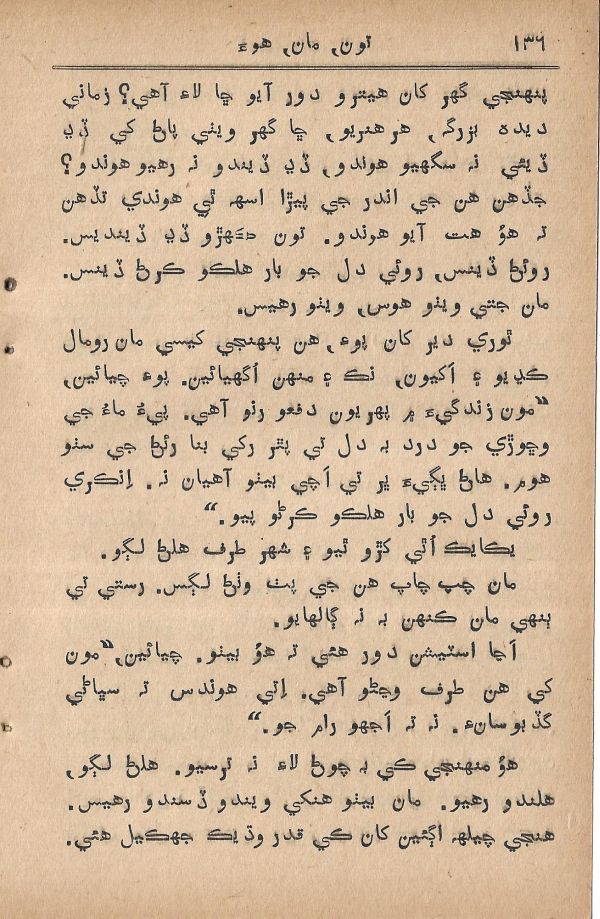 تون، مان، هوءَ ١٣٦
پنهنجي گهر کان هيترو دور آيو ڇا لاءِ آهي؟ زماني
ديده بزرگ، هر هنريو، ڇا گهر ويٺي پاڻ کي ڏڍ
ڏيئي نہ سگهيو هوندو، ڏڍ ڏيندو نہ رهيو هوندو؟
جڏهن هن جي اندر جي پيڙا اسهہ ٿي هوندي تڏهن
تہ هؤ هت آيو هوندو. تون ڪهڙو ڏڍ ڏيندينس.
روئڻ ڏينس، روئي دل جو بار هلڪو ڪرڻ ڏينس.
مان جتي ويٺو هوس، ويٺو رهيس.
ٿوري دير کان پوءِ، هن پنهنجي کيسي مان رومال
ڪڍيو ۽ اَکيون، نڪ ۽ منهن اُگهيائين. پوءِ چيائين،
“مون زندگيءَ ۾ پهريون دفعو رنو آهي. پيءُ ماءُ جي
وڇوڙي جو درد بہ دل تي پٿر رکي بنا رئڻ جي سٺو
هوم. هاڻ ڀڳيءَ ڀر تي اَچي بيٺو آهيان نہ. اِنڪري
روئي دل جو بار هلڪو ڪرڻو پيو.”
يڪايڪ اُٿي کڙو ٿيو ۽ شهر طرف هلڻ لڳو.
مان چپ چاپ هن جي پٺ وٺڻ لڳس. رستي تي
ٻنهي مان ڪنهن بہ نہ ڳالهايو.
اَڃا اسٽيشن دور هئي تہ هؤ بيٺو. چيائين، “مون
کي هن طرف وڃڻو آهي. اِتي هوندس تہ سڀاڻي
گڏبوسانءِ. نہ تہ اَجهو رام جو.”
هؤ منهنجي ڪي بہ چوڻ لاءِ نہ ترسيو. هلڻ لڳو،
هلندو رهيو. مان بيٺو هنکي ويندو ڏسندو رهيس.
هنجي چيلهہ اڳئين کان ڪي قدر وڌيڪ جهڪيل هئي.